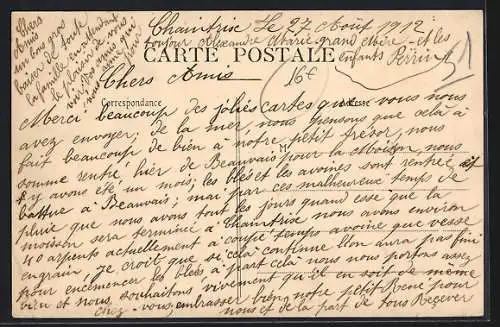 Chers
Amis
un bon gros
baiser de toute
la famille en attendant
le plaisir de vous
voir
Chaintrix Le 27 Août 1912
Bonjour Alexandre Marie grand Mère et les
enfants Perrin
CARTE POSTALE
16f
Chers Amis
Correspondance
Merci beaucoup des jolies cartes que vous nous
avez envoyer; de la mer, nous pensons que celà à
fait beaucoup de bien à notre petit trésor, nous
somme rentré hier de Beauvais pour la Moisson nous
y avons été un mois; les blés et les avoines sont rentré et
battue à Beauvais; mai par ces malheureux temps de
pluie que nous avons tout les jours quand esse que la
moisson sera terminé à Chaintrix nous avons environ
40 arpents actuellement à coupé temps avoine que vesse
engrain, Je croit que si celà continue l'on aura pas fini
pour encemencer les blés à part celà nous nous portons assez
bien et nous souhaitons vivement qu'il en soit de même
chez vous, embrasser bien notre petit René pour
nous et de la part de tous Recever